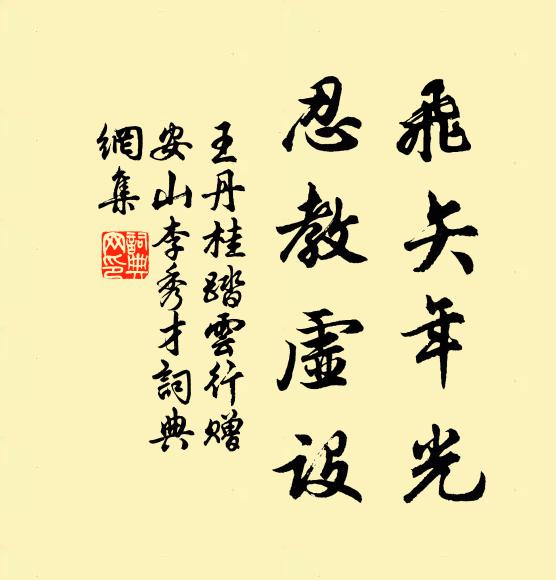 飛矢年光
忍教虛設
王丹桂踏雲行贈
安山李秀才詞典
網集
詞典
网印